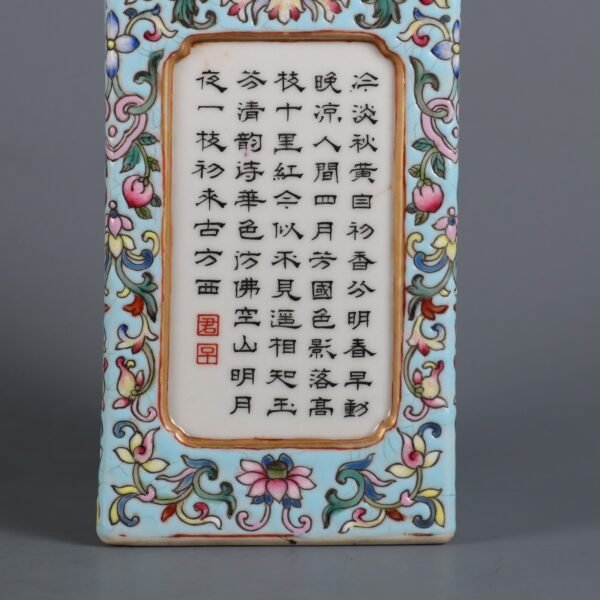 冷淡秋黄自初香分明春早動
晚凉人間四月芳國色影落高
枝十里紅今似不見遥相知玉
芬清韵诗華色彷佛空山明月
夜一枝初来古方西
君